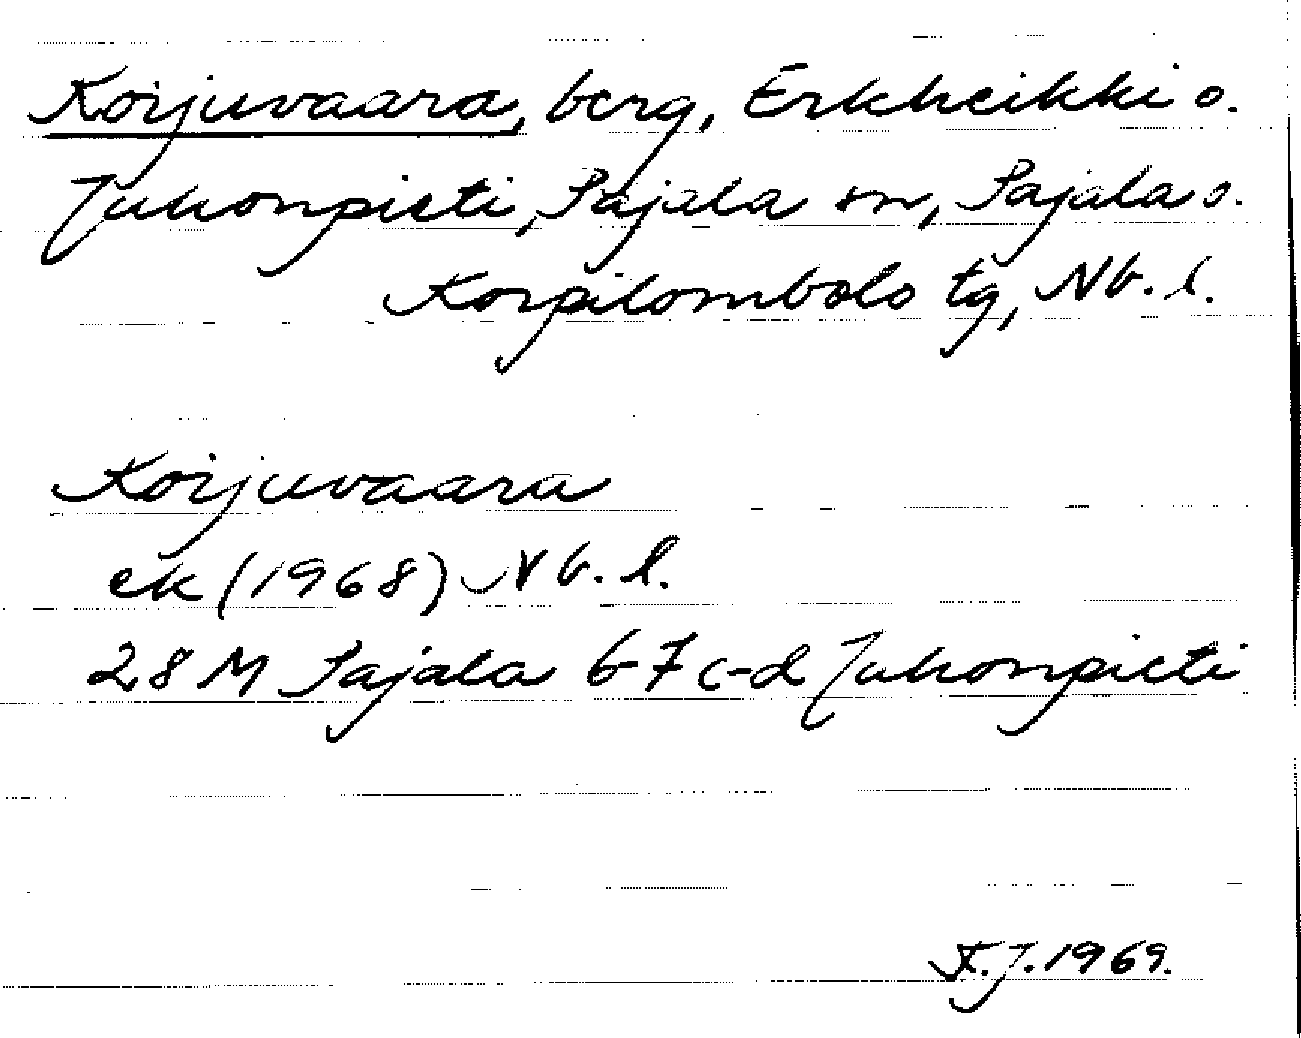 Koijuvaara, berg, Erkheikki o.
Juhonpieti, Pajala sn, Pajala o.
Korpilombolo tg, Nb. l.
Koijuvaara
ek (1968) Nb. l.
28 M Pajala 6-7 c-d Juhonpieti
K.J. 1969.